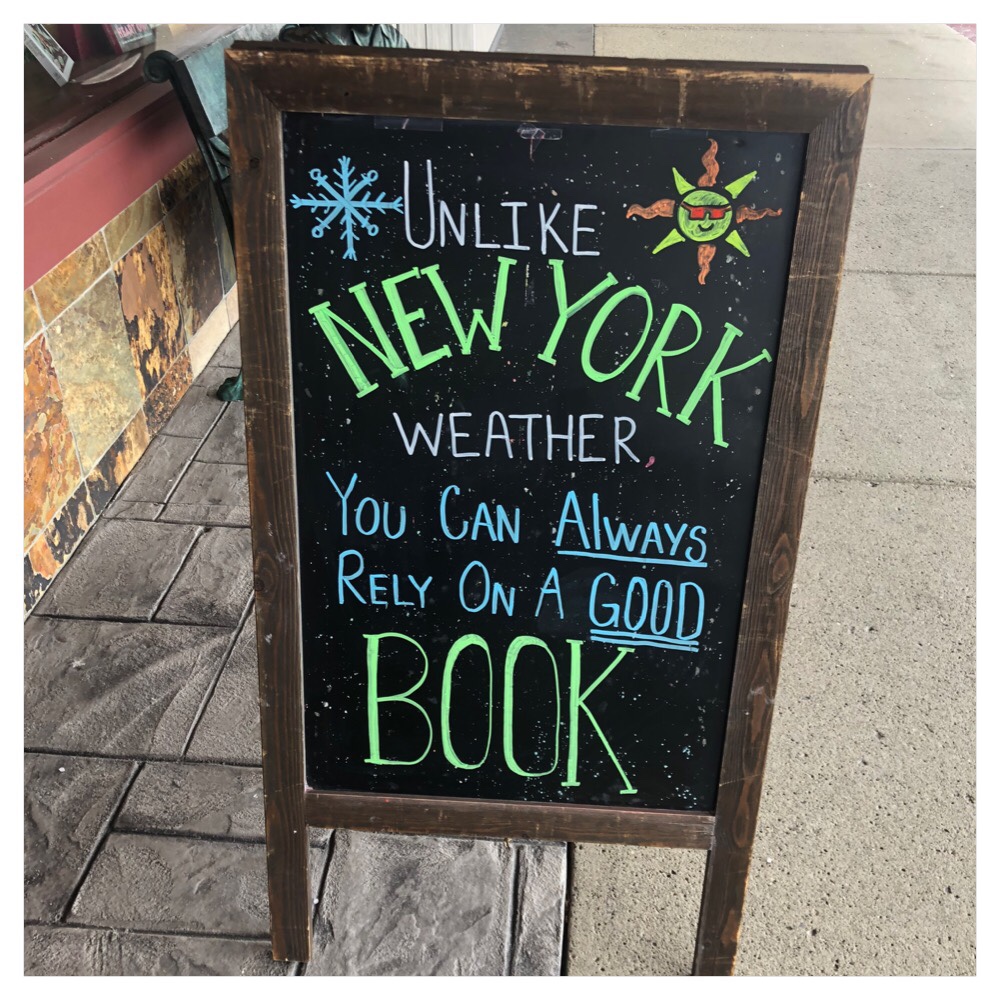 UNLIKE
NEW YORK
WEATHER,
YOU CAN AlWAYS
RELY ON A GOOD
BOOK